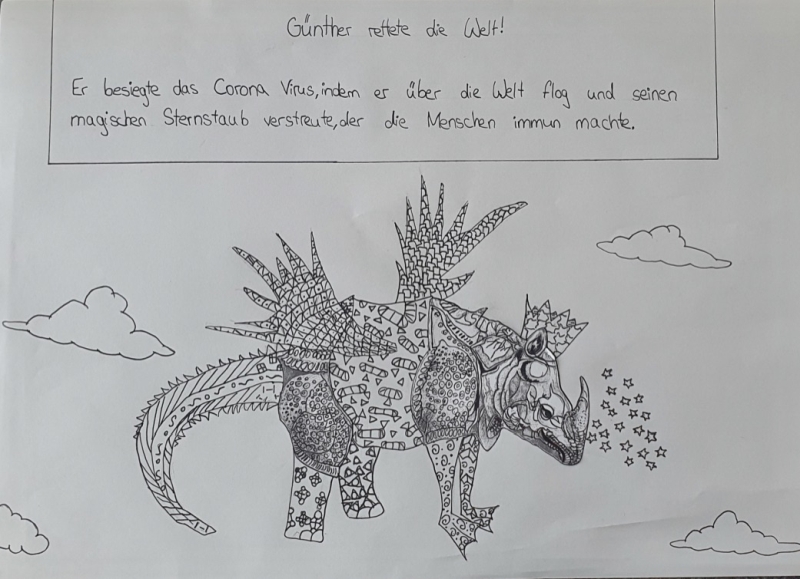 Günther rettete die Welt!
Er besiegte das Corona Virus, indem er über die Welt flog und seinen
magischen Sternstaub verstreute, der die Menschen immun machte.